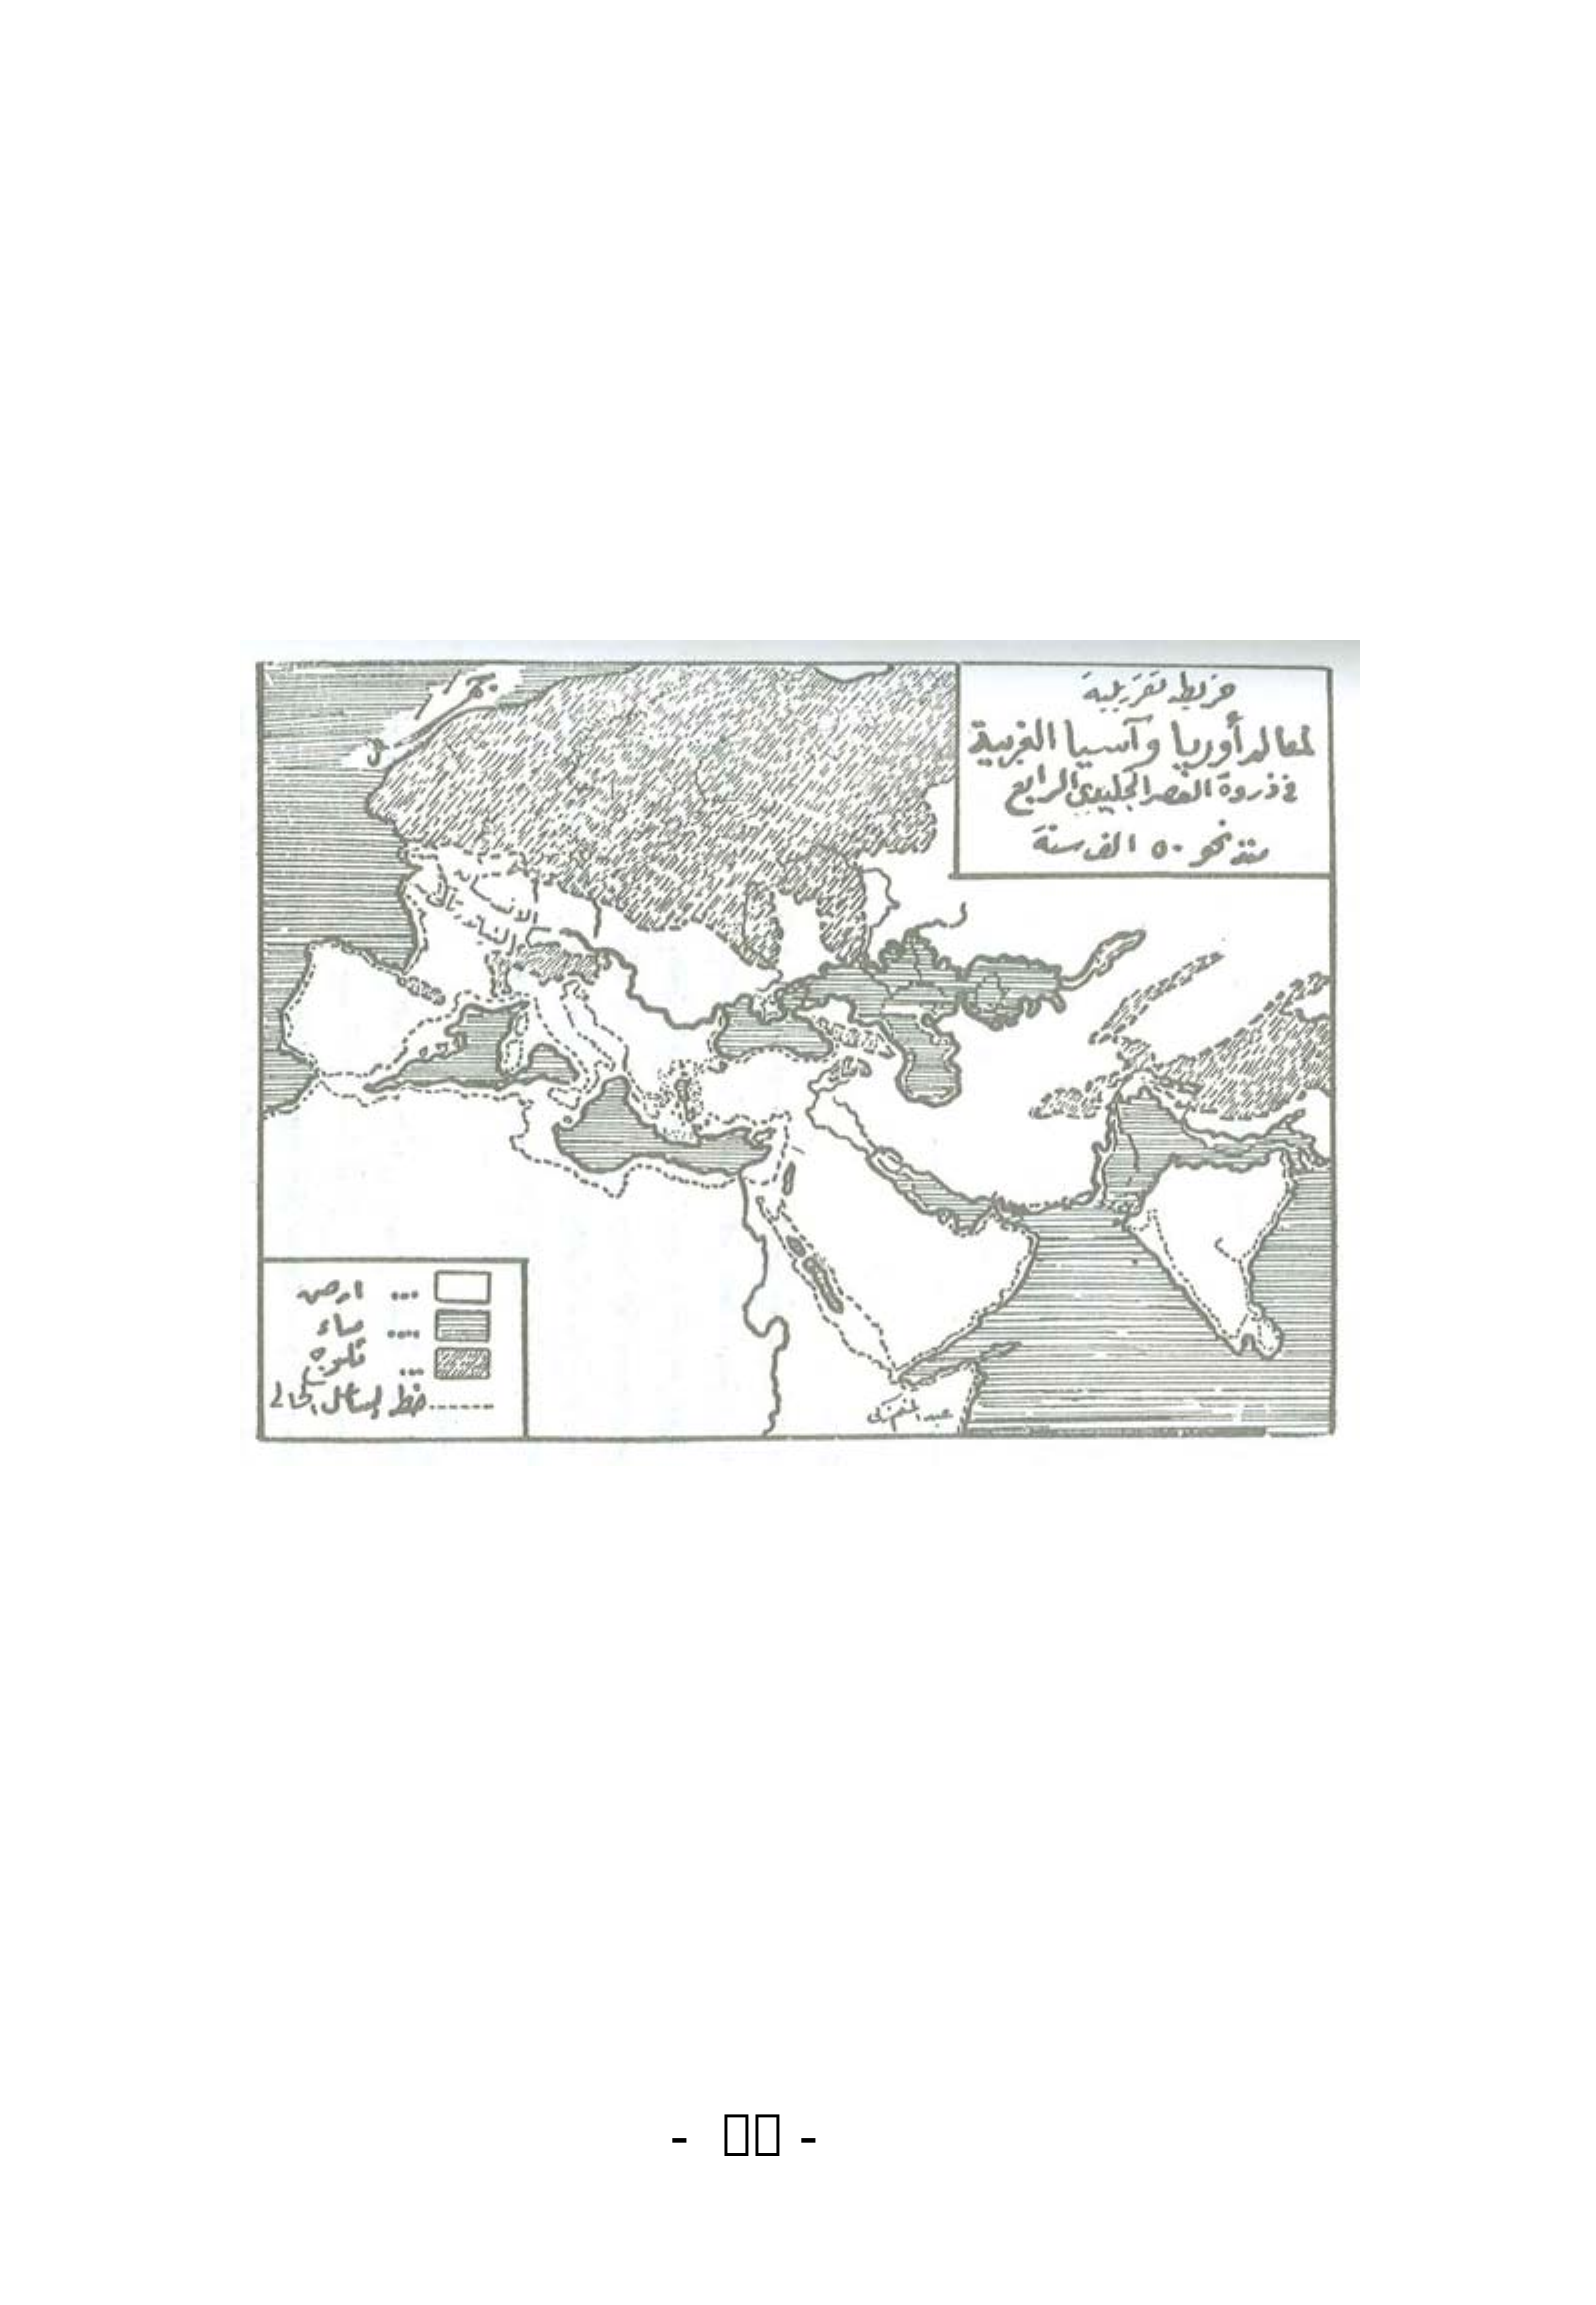 خريطة تقريبية
لمعالم أوربا وآسيا الغربية
في ذروة العصر الجليدي الرابع
منذ نحو ٥٠ الف سنة
بحر
الانسان
ارض ...
ماء ....
ثلوج ...
خط الساحل الحالي ------
عبد المنعم
- -